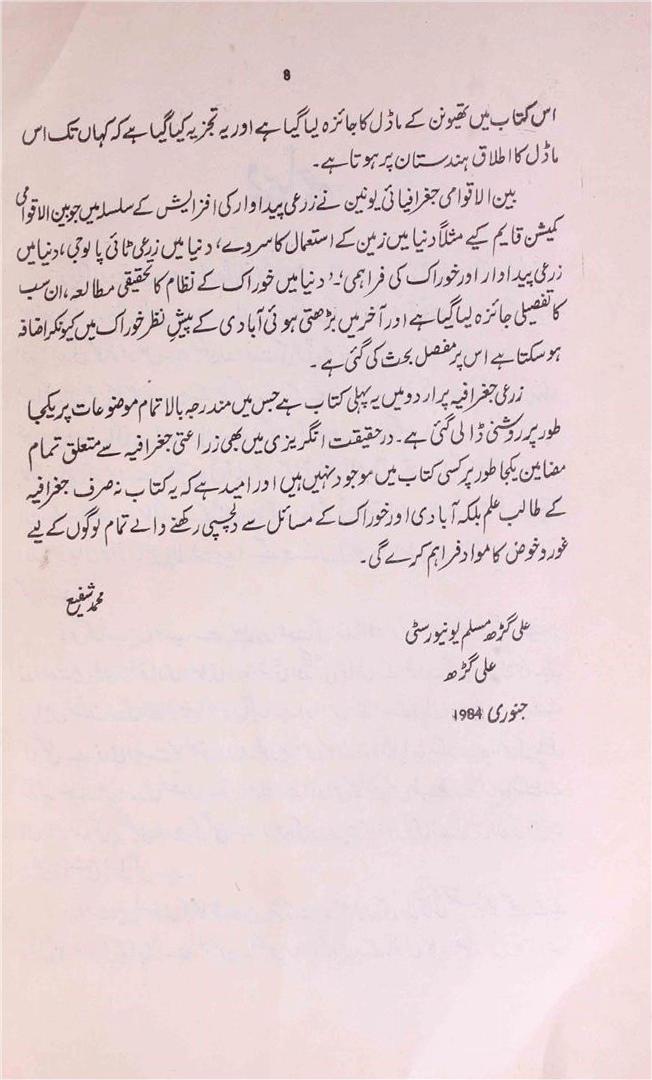 8
اس کتاب میں تھیونن کے ماڈل کا جائزہ لیا گیا ہے اور یہ تجزیہ کیا گیا ہے کہ کہاں تک اس
ماڈل کا اطلاق ہندستان پر ہوتا ہے۔
بین الاقوامی جغرافیائی یونین نے زرعی پیداوار کی افزایش کے سلسلہ میں جو بین الاقوامی
کمیشن قایم کیے مثلاً دنیا میں زمین کے استعمال کا سروے، دنیا میں زرعی ٹائی پالوجی، دنیا میں
زرعی پیداوار اور خوراک کی فراہمی۔ دنیا میں خوراک کے نظام کا تحقیقی مطالعہ، ان سب
کا تفصیلی جائزہ لیا گیا ہے اور آخر میں بڑھتی ہوئی آبادی کے پیش نظر خوراک میں کیونکر اضافہ
ہو سکتا ہے اس پر مفصل بحث کی گئی ہے۔
زرعی جغرافیہ پر اردو میں یہ پہلی کتاب ہے جس میں مندرجہ بالا تمام موضوعات پر یکجا
طور پر روشنی ڈالی گئی ہے۔ درحقیقت انگریزی میں بھی زراعتی جغرافیہ سے متعلق تمام
مضامین یکجا طور پر کسی کتاب میں موجود نہیں ہیں اور امید ہے کہ یہ کتاب نہ صرف جغرافیہ
کے طالب علم بلکہ آبادی اور خوراک کے مسائل سے دلچسپی رکھنے والے تمام لوگوں کے لیے
غور و خوض کا مواد فراہم کرے گی۔
محمد شفیع
علی گڑھ مسلم یونیورسٹی
علی گڑھ
جنوری 1984